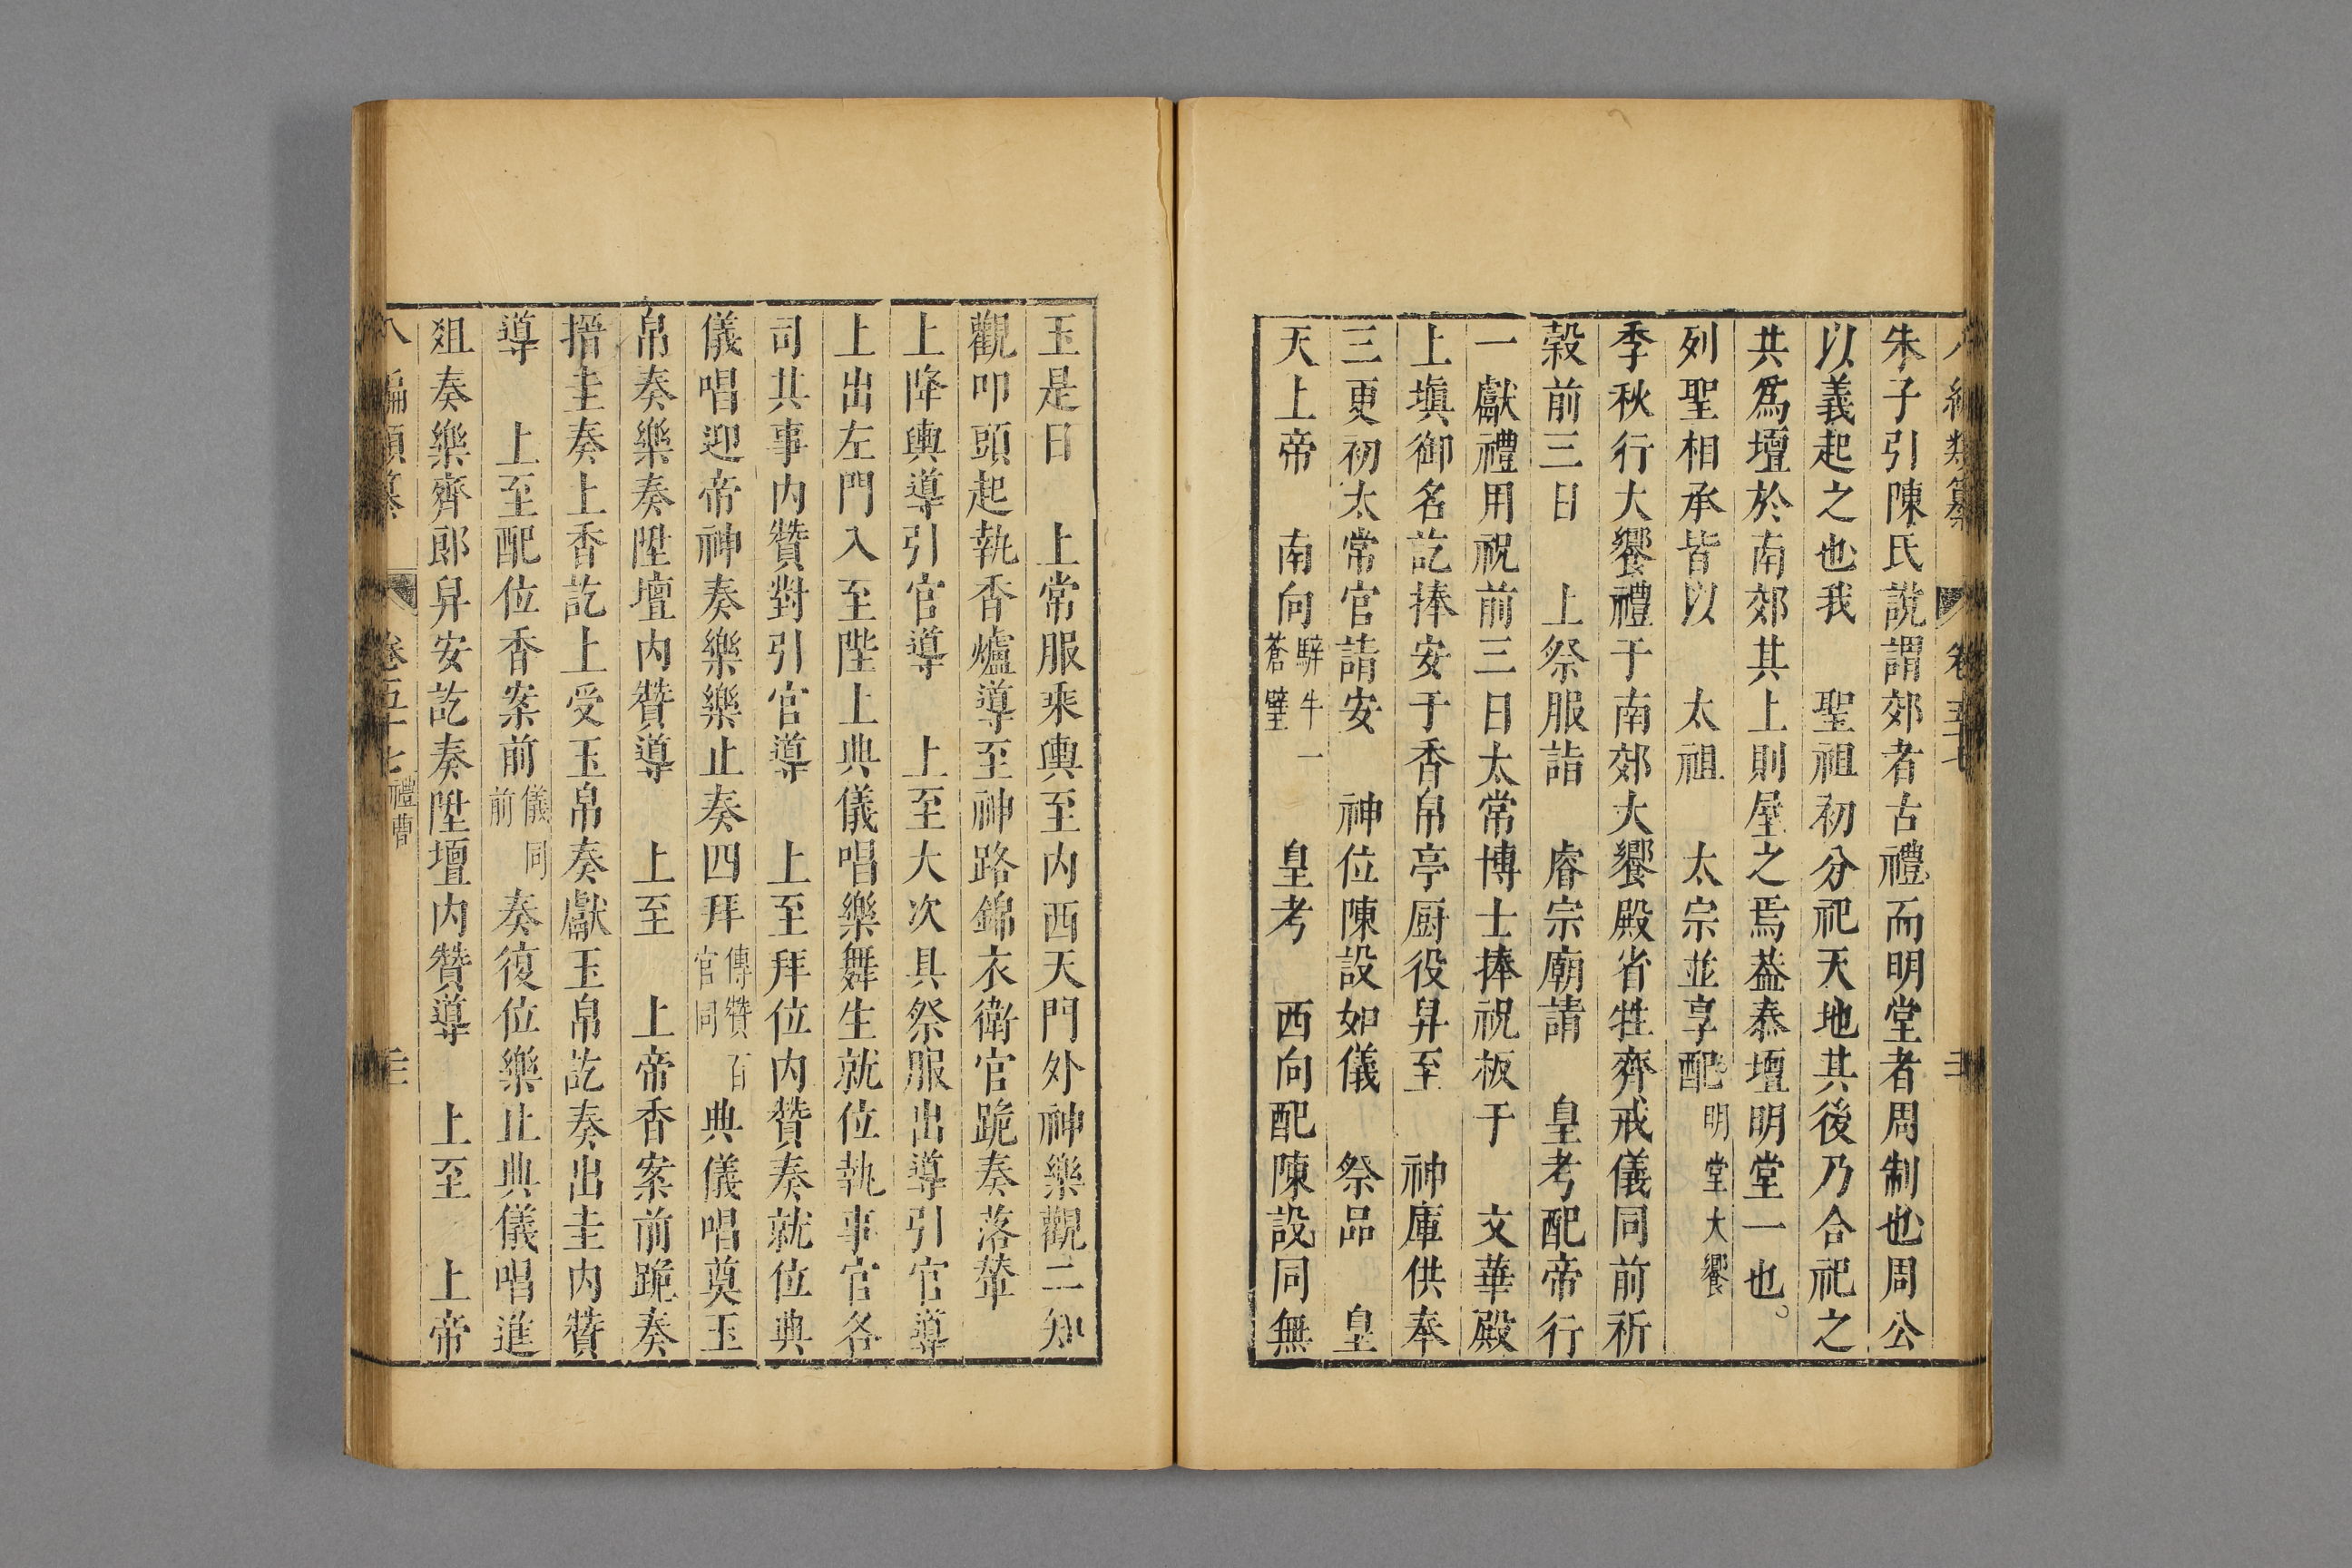 編類纂 卷五十七
朱子引陳氏說謂郊者古禮而明堂者周制也周公
以義起之也我 聖祖初分祀天地其後乃合祀之
共爲壇於南郊其上則屋之焉葢泰壇明堂一也
列聖相承皆以 太祖 太宗並享配 明堂大饗
季秋行大饗禮于南郊大饗殿省牲齊戒儀同前祈
穀前三日 上祭服詣 睿宗廟請 皇考配帝行
一獻禮用祝前三日太常博士捧祝板于 文華殿
上塡御名訖捧安于香帛亭厨役舁至 神庫供奉
三更初太常官請安 神位陳設如儀 祭品 皇
天上帝 南向 騂牛一 蒼璧 皇考 西向配陳設同無
玉是日 上常服乘輿至内西天門外神樂觀二知
觀叩頭起執香爐導至神路錦衣衛官跪奏落輦
上降輿導引官導 上至大次具祭服出導引官導
上出左門入至陛上典儀唱樂舞生就位執事官各
司其事内贊對引官導 上至拜位内贊奏就位典
儀唱迎帝神奏樂樂止奏四拜 傳贊百官同 典儀唱奠玉
帛奏樂奏陞壇内贊導 上至 上帝香案前跪奏
搢圭奏上香訖上受玉帛奏獻玉帛訖奏出圭内贊
導 上至配位香案前 儀同前 奏復位樂止典儀唱進
俎奏樂齊郎舁安訖奏陞壇内贊導 上至 上帝
八編類纂 卷五十七 禮曹